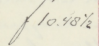 f 10.48½